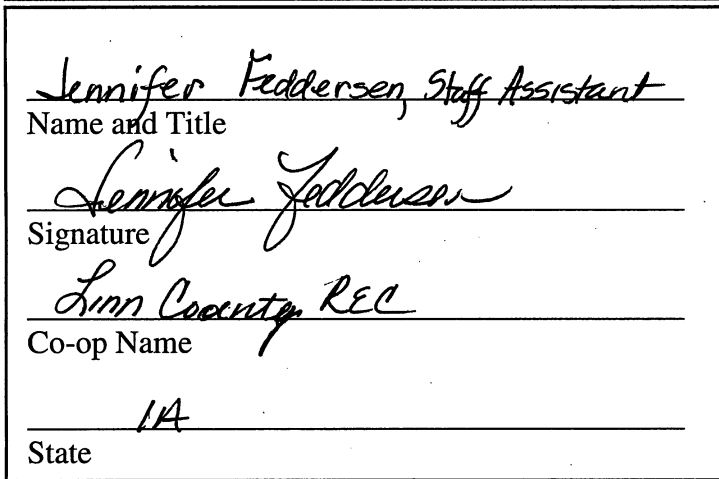 Jennifer Feddersen, Staff Assistant
Name and Title
Jennifer Feddersen
Signature
Linn County REC
Co-op Name
IA
State